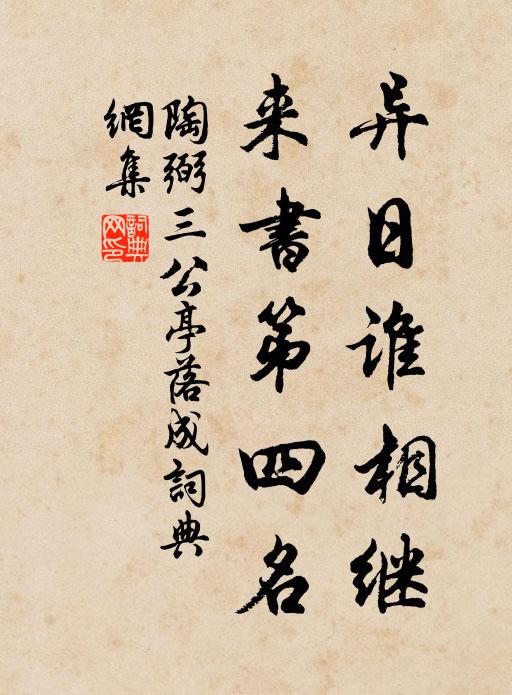 异日谁相继
来書第四名
陶弼三公亭落成詞典
網集
詞典
网印